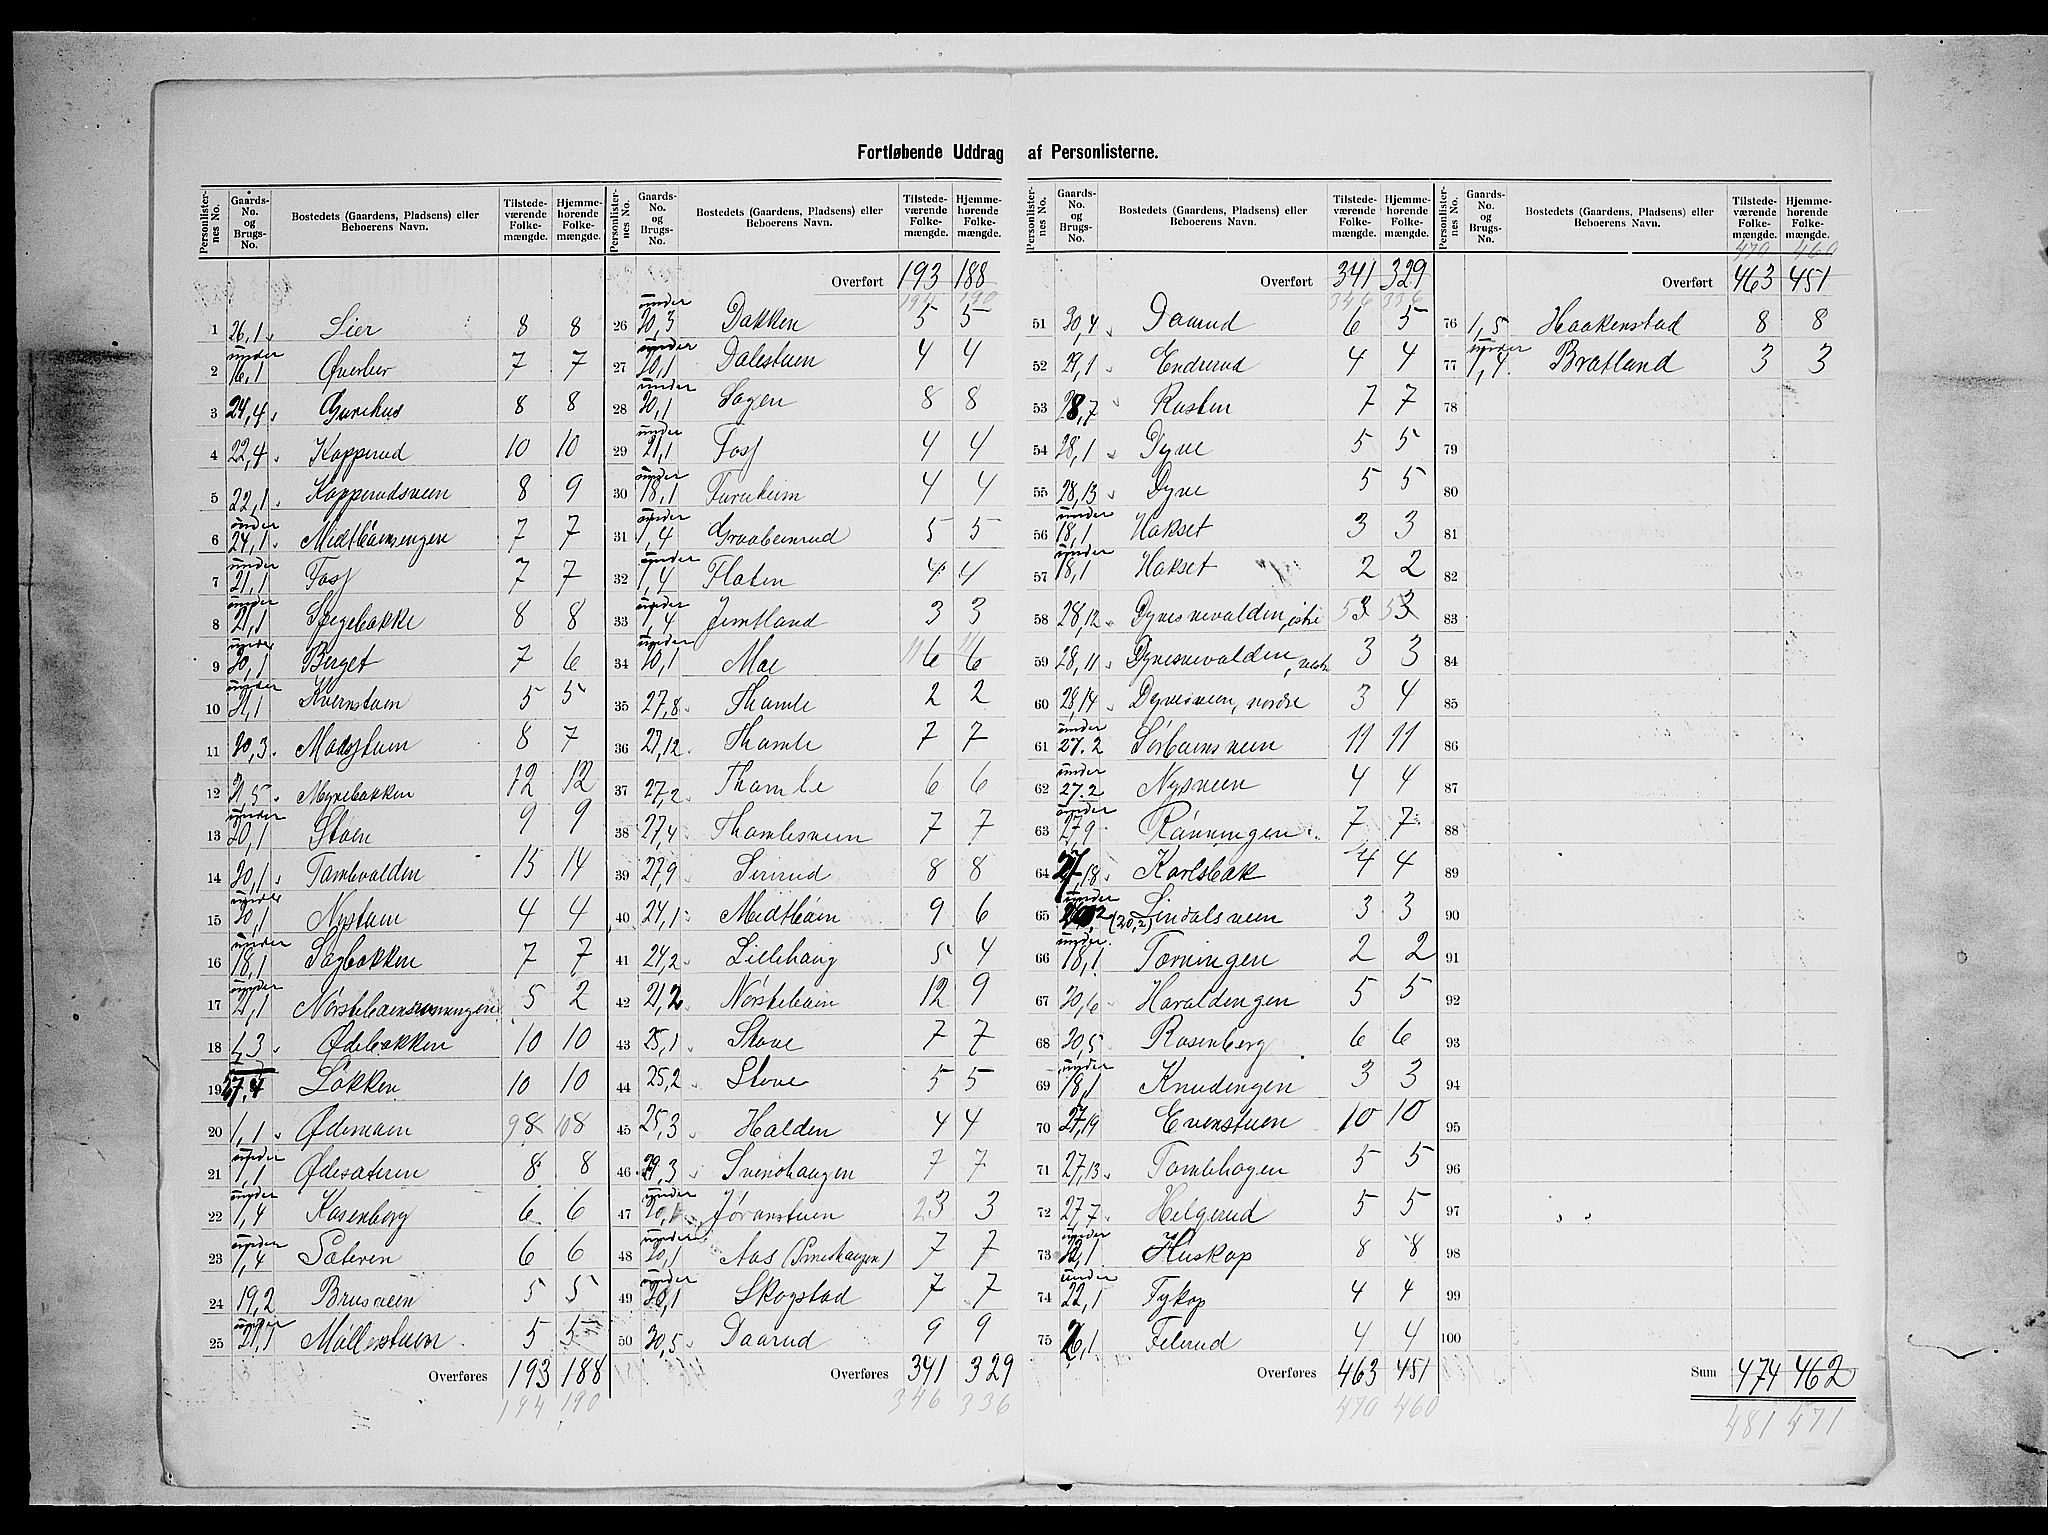 Fortløbende Uddrag af Personlisterne.
Personlisternes No. | Gaards-No. og Brugs-No. | Bostedets (Gaardens, Pladsens) eller Beboerens Navn. | Tilstedeværende Folkemængde. | Hjemmehørende Folkemængde.
1 26,1 Lier 8 8
2 under 16,1 Øverlier 7 7
3 24,4 Gunihus 8 8
4 22,4 Kopperud 10 10
5 22,1 Kopperudsveen 8 9
6 under 24,1 Midtbøensengen 7 7
7 under 21,1 Fosf 7 7
8 under 21,1 Spegebakke 8 8
9 under 20,1 Berget 7 6
10 under 21,1 Kvernstuen 5 5
11 20,3 Madsstuen 8 7
12 21,5 Myrebakken 12 12
13 under 20,1 Støen 9 9
14 20,1 Tambvolden 15 14
15 under 20,1 Nystuen 4 4
16 under 18,1 Sagbakken 7 7
17 under 21,1 Nørstebøensrønningen 5 2
18 1,3 Ødebakken 10 10
19 27,4 Løkken 10 10
20 1,1 Ødemoen 9 8 10 8
21 under 1,1 Ødesæteren 8 8
22 under 1,4 Rosenborg 6 6
23 under 1,4 Sæteren 6 6
24 19,2 Brusveen 5 5
25 under 21,1 Møllerstuen 5 5
Overføres 193 188
194 190
Overført 193 188
194 190
26 under 20,3 Bakken 5 5
27 under 20,1 Dalestuen 4 4
28 under 20,1 Hagen 8 8
29 under 21,1 Fosf 4 4
30 under 18,1 Furuheim 4 4
31 under 1,4 Graabeinrud 5 5
32 under 1,4 Flaten 4 4
33 under 1,4 Jemtland 3 3
34 under 20,1 Moe 11 6 11 6
35 27,8 Thomle 2 2
36 27,12 Thomle 7 7
37 27,2 Thomle 6 6
38 27,4 Thomlesveen 7 7
39 27,9 Sevrud 8 8
40 24,1 Midtbøen 9 6
41 24,2 Lillehaug 5 4
42 21,2 Nørstebøen 12 9
43 25,1 Stove 7 7
44 25,2 Stove 5 5
45 25,3 Halden 4 4
46 29,3 Svendhaugen 7 7
47 under 20,1 Jøranstuen 2 3 3
48 under 20,1 Aas (Smedhaugen) 7 7
49 under 20,1 Skogstad 7 7
50 30,5 Daarud 9 9
Overføres 341 329
346 336
Overført 341 329
346 336
51 30,4 Daarud 6 5
52 29,1 Endrerud 4 4
53 28,7 Rusten 7 7
54 28,1 Dyve 5 5
55 28,13 Dyve 5 5
56 under 18,1 Hakset 3 3
57 under 18,1 Hakset 2 2
58 28,12 Dynesnevolden, østre 5 3 5 3
59 28,11 Dynesnevolden, vestr 3 3
60 28,14 Dynesveen, nordre 3 4
61 under 27.2 Sørbøensveen 11 11
62 under 27.2 Nysveen 4 4
63 under 27,9 Rønningen 7 7
64 27,18 Karlsbak 4 4
65 under (20,2) Lindalsveen 3 3
66 under 18,1 Tørningen 2 2
67 20,6 Haraldengen 5 5
68 20,5 Rosenberg 6 6
69 under 18,1 Knudengen 3 3
70 27,19 Evenstuen 10 10
71 27,13 Tomlehagen 5 5
72 27,7 Helgerud 5 5
73 under 22,1 Huskop 8 8
74 under 22,1 Fykop 4 4
75 26,1 Felerud 4 4
Overføres 463 451
470 460
470 460
Overført 463 451
76 1,5 Haakenstad 8 8
77 under 1,4 Bratland 3 3
78
79
80
81
82
83
84
85
86
87
88
89
90
91
92
93
94
95
96
97
98
99
100
Sum 474 462
481 471